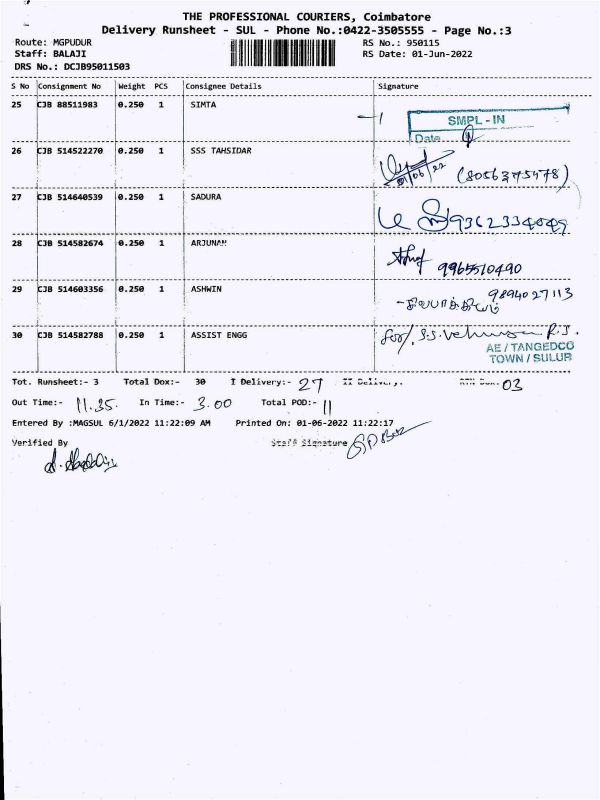 THE PROFESSIONAL COURIERS, Coimbatore
Delivery Runsheet - SUL - Phone No.:0422-3505555 - Page No.:3
Route: MGPUDUR RS No.: 950115
Staff: BALAJI RS Date: 01-Jun-2022
DRS No.: DCJB95011503
S No Consignment No Weight PCS Consignee Details Signature
25 CJB 88511983 0.250 1 SIMTA
SMPL - IN
Date
26 CJB 514522270 0.250 1 SSS TAHSIDAR
01/06/22 (8056375478)
27 CJB 514640539 0.250 1 SADURA
9362334049
28 CJB 514582674 0.250 1 ARJUNAN
9965510490
29 CJB 514603356 0.250 1 ASHWIN
9894027113
30 CJB 514582788 0.250 1 ASSIST ENGG
for/. S.S.
AE / TANGEDCO
TOWN / SULUR
Tot. Runsheet:- 3 Total Dox:- 30 I Delivery:- 27 II Delivery:- RTN Dox:- 03
Out Time:- 11.35. In Time:- 3.00 Total POD:- 11
Entered By :MAGSUL 6/1/2022 11:22:09 AM Printed On: 01-06-2022 11:22:17
Verified By Staff Signature